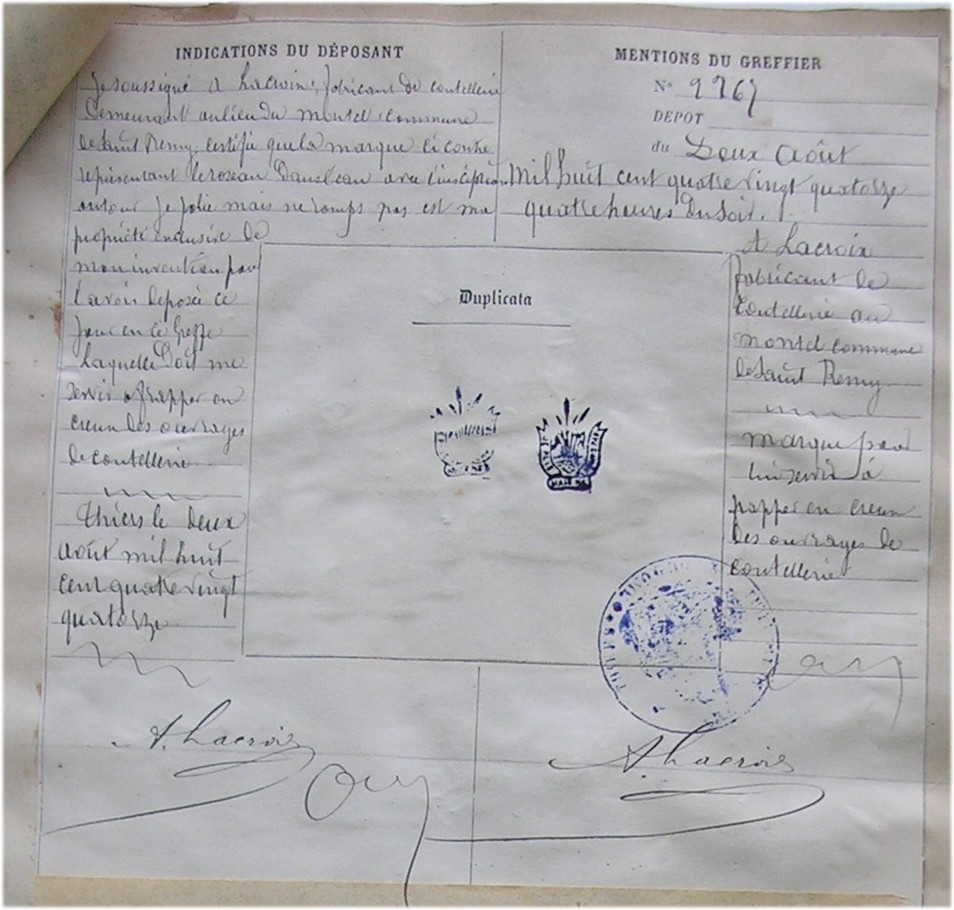 INDICATIONS DU DÉPOSANT
Je soussigné A Lacroix, fabricant de coutellerie
demeurant au lieu du montel commune
de Saint Remy, certifie que la marque ci contre
représentant le roseau dans l'eau avec l'inscription
autour je plie mais ne romps pas est ma
propriété exclusive de
mon invention pour
l'avoir déposée ce
jour en ce Greffe
Laquelle doit me
servir à frapper en
creux des ouvrages
de coutellerie
Thiers le deux
août mil huit
cent quatre vingt
quatorze
A. Lacroix
MENTIONS DU GREFFIER
N°
DEPOT
du Deux Août
Mil huit cent quatre vingt quatorze
quatre heures du soir.
A Lacroix
fabricant de
Coutellerie au
montel commune
de Saint Remy
marque pour
lui servir à
frapper en creux
des ouvrages de
coutellerie
Duplicata
A. Lacroix